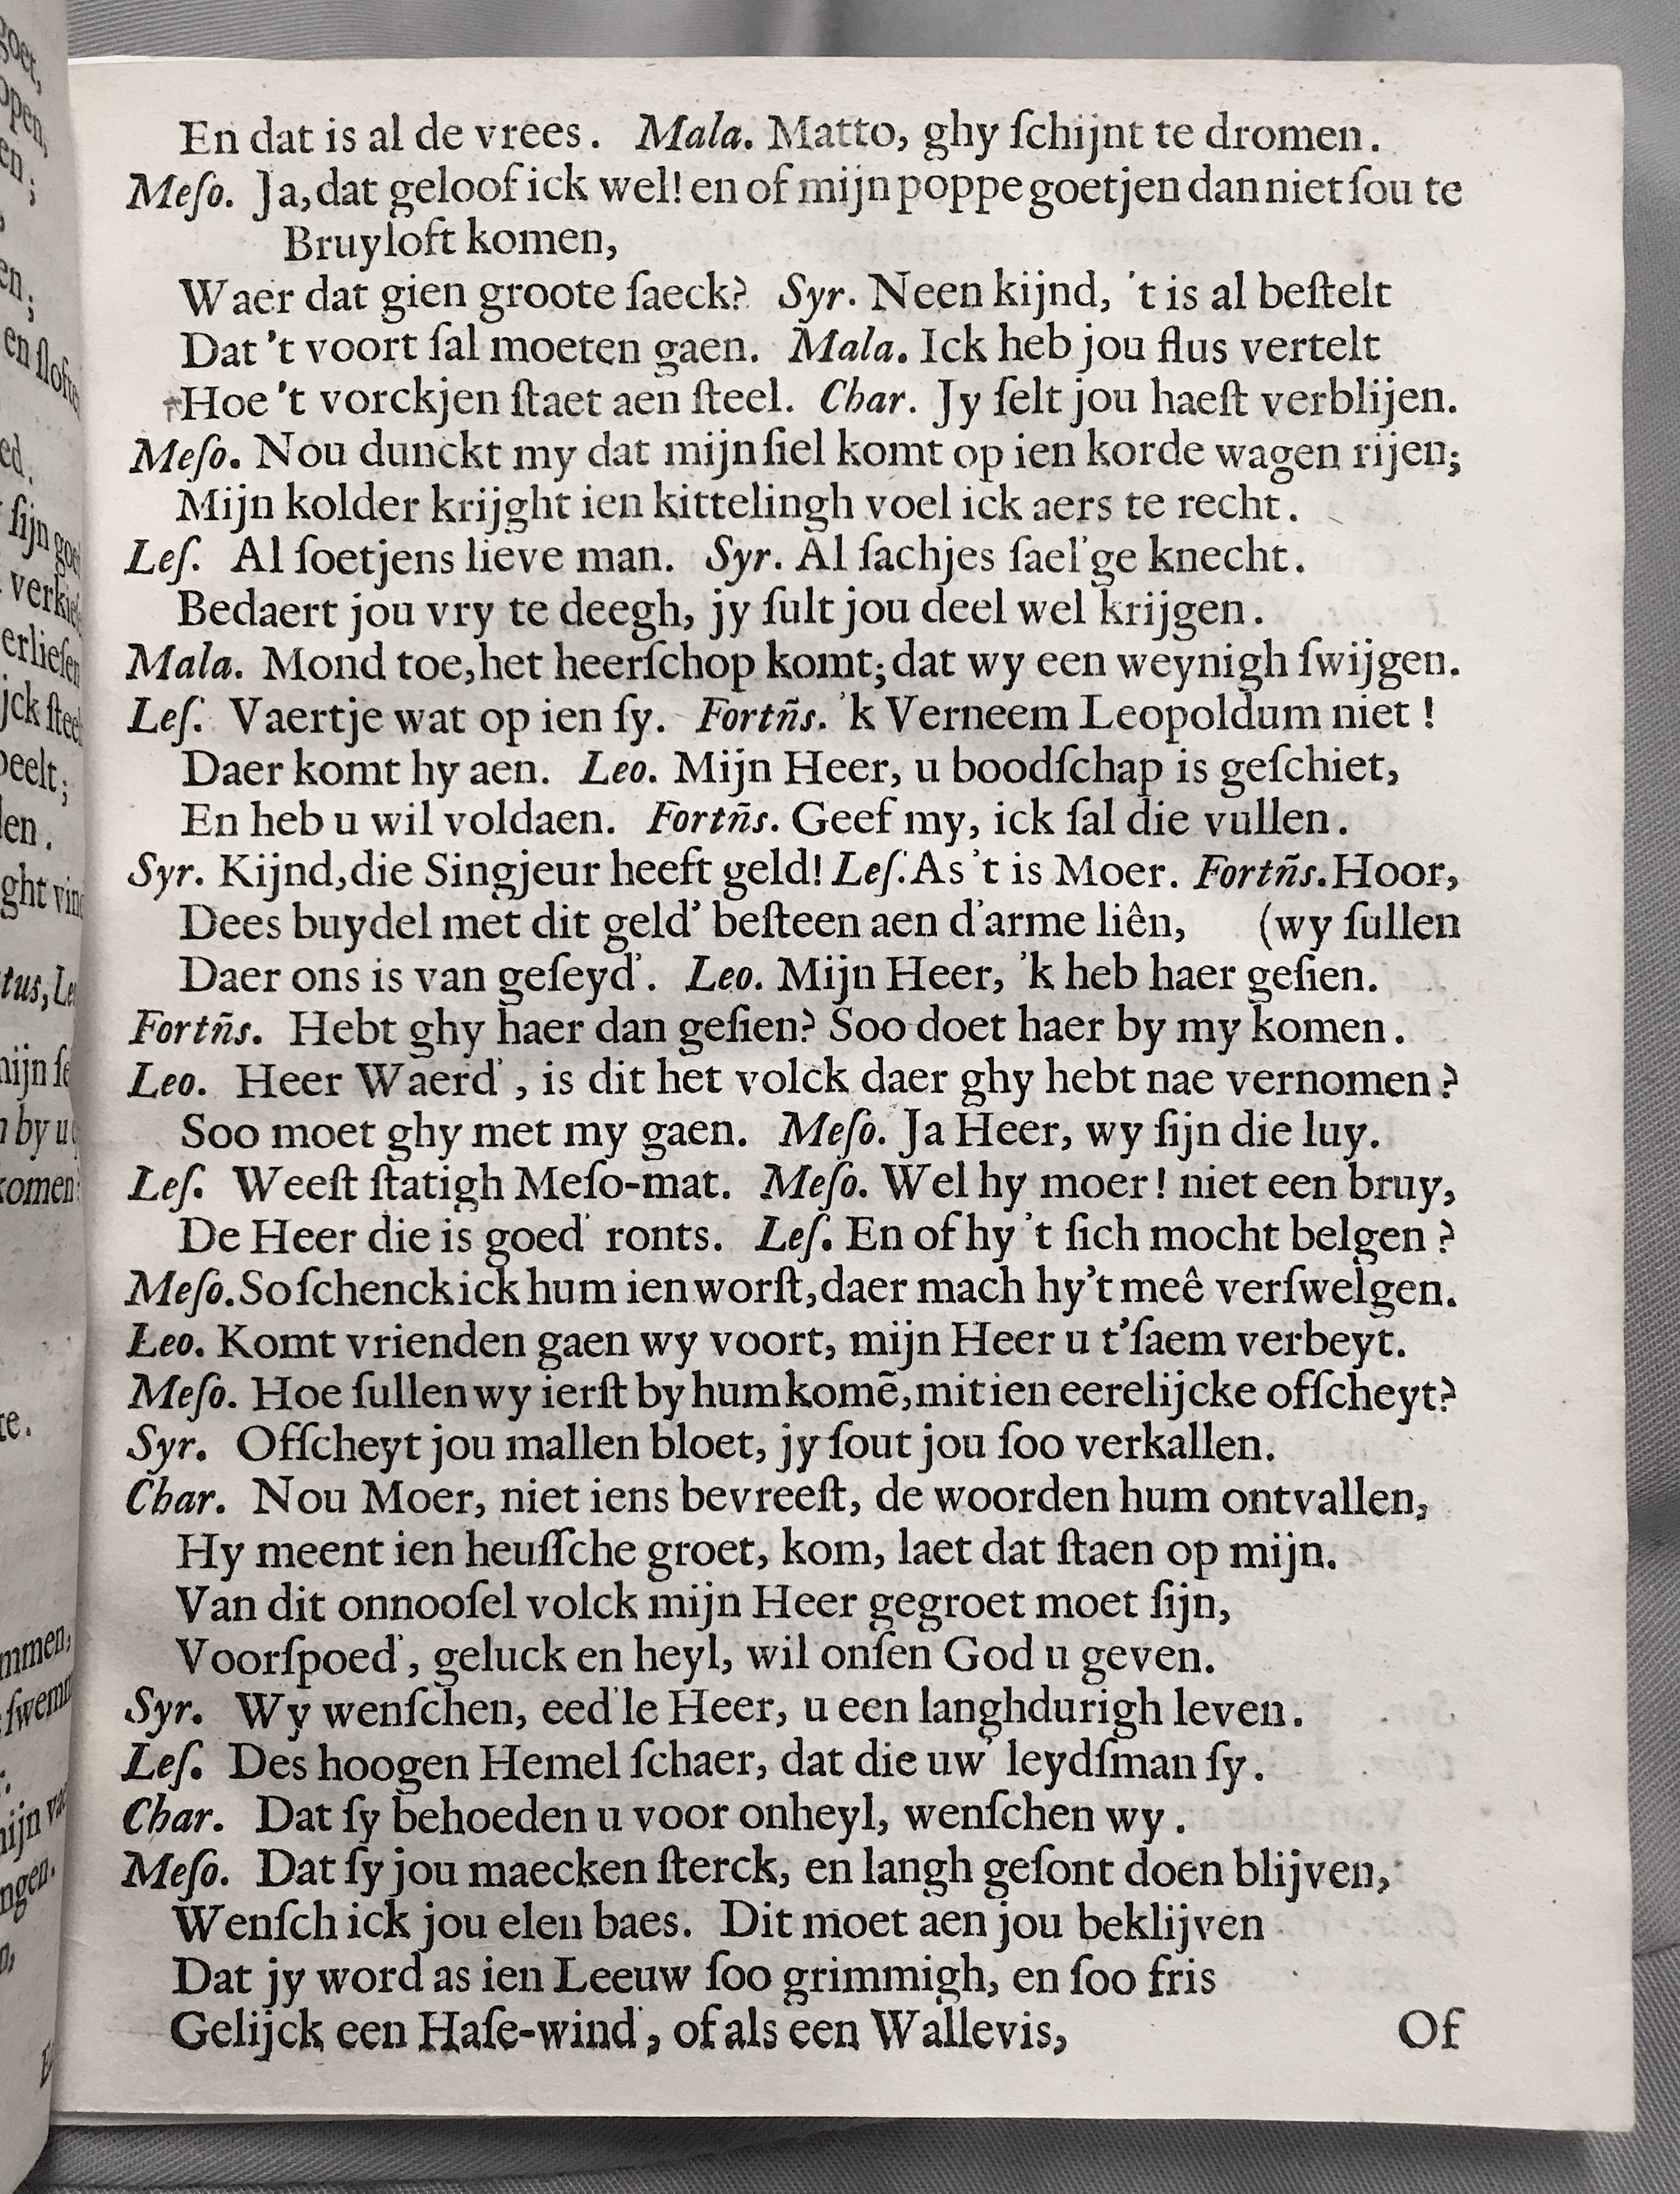 En dat is al de vrees. Mala. Matto, ghy ſchijnt te dromen.
Meſo. Ja, dat geloof ick wel! en of mijn poppegoetjen dan niet ſou te
Bruyloft komen,
Waer dat gien groote ſaeck? Syr. Neen kijnd, 't is al beſtelt
Dat 't voort ſal moeten gaen. Mala. Ick heb jou flus vertelt
Hoe 't vorckjen ſtaet aen ſteel. Char. Jy ſelt jou haeſt verblijen.
Meſo. Nou dunckt my dat mijn ſiel komt op ien korde wagen rijen;
Mijn kolder krijght ien kittelingh voel ick aers te recht.
Leſ. Al ſoetjens lieve man. Syr. Al ſachjes ſael'ge knecht.
Bedaert jou vry te deegh, jy ſult jou deel wel krijgen.
Mala. Mond toe, het heerſchop komt; dat wy een weynigh ſwijgen.
Leſ. Vaertje wat op ien ſy. Fortñs. 'k Verneem Leopoldum niet!
Daer komt hy aen. Leo. Mijn Heer, u boodſchap is geſchiet,
En heb u wil voldaen. Fortñs. Geef my, ick ſal die vullen.
Syr. Kijnd, die Singjeur heeft geld! Leſ. As 't is Moer. Fortñs. Hoor,
Dees buydel met dit geld' beſteen aen d'arme liên, (wy ſullen
Daer ons is van geſeyd'. Leo. Mijn Heer, 'k heb haer geſien.
Fortñs. Hebt ghy haer dan geſien? Soo doet haer by my komen.
Leo. Heer Waerd', is dit het volck daer ghy hebt nae vernomen?
Soo moet ghy met my gaen. Meſo. Ja Heer, wy ſijn die luy.
Leſ. Weeſt ſtatigh Meſo-mat. Meſo. Wel hy moer! niet een bruy,
De Heer die is goed' ronts. Leſ. En of hy 't ſich mocht belgen?
Meſo. So ſchenck ick hum ien worſt, daer mach hy't meê verſwelgen.
Leo. Komt vrienden gaen wy voort, mijn Heer u t'ſaem verbeyt.
Meſo. Hoe ſullen wy ierſt by hum komẽ, mit ien eerelijcke offcheyt?
Syr. Offcheyt jou mallen bloet, jy ſout jou ſoo verkallen.
Char. Nou Moer, niet iens bevreeſt, de woorden hum ontvallen,
Hy meent ien heuſſche groet, kom, laet dat ſtaen op mijn.
Van dit onnooſel volck mijn Heer gegroet moet ſijn,
Voorſpoed', geluck en heyl, wil onſen God u geven.
Syr. Wy wenſchen, eed'le Heer, u een langhdurigh leven.
Leſ. Des hoogen Hemel ſchaer, dat die uw' leydſman ſy.
Char. Dat ſy behoeden u voor onheyl, wenſchen wy.
Meſo. Dat ſy jou maecken ſterck, en langh geſont doen blijven,
Wenſch ick jou elen baes. Dit moet aen jou beklijven
Dat jy word as ien Leeuw ſoo grimmigh, en ſoo fris
Gelijck een Haſe-wind', of als een Wallevis,
Of